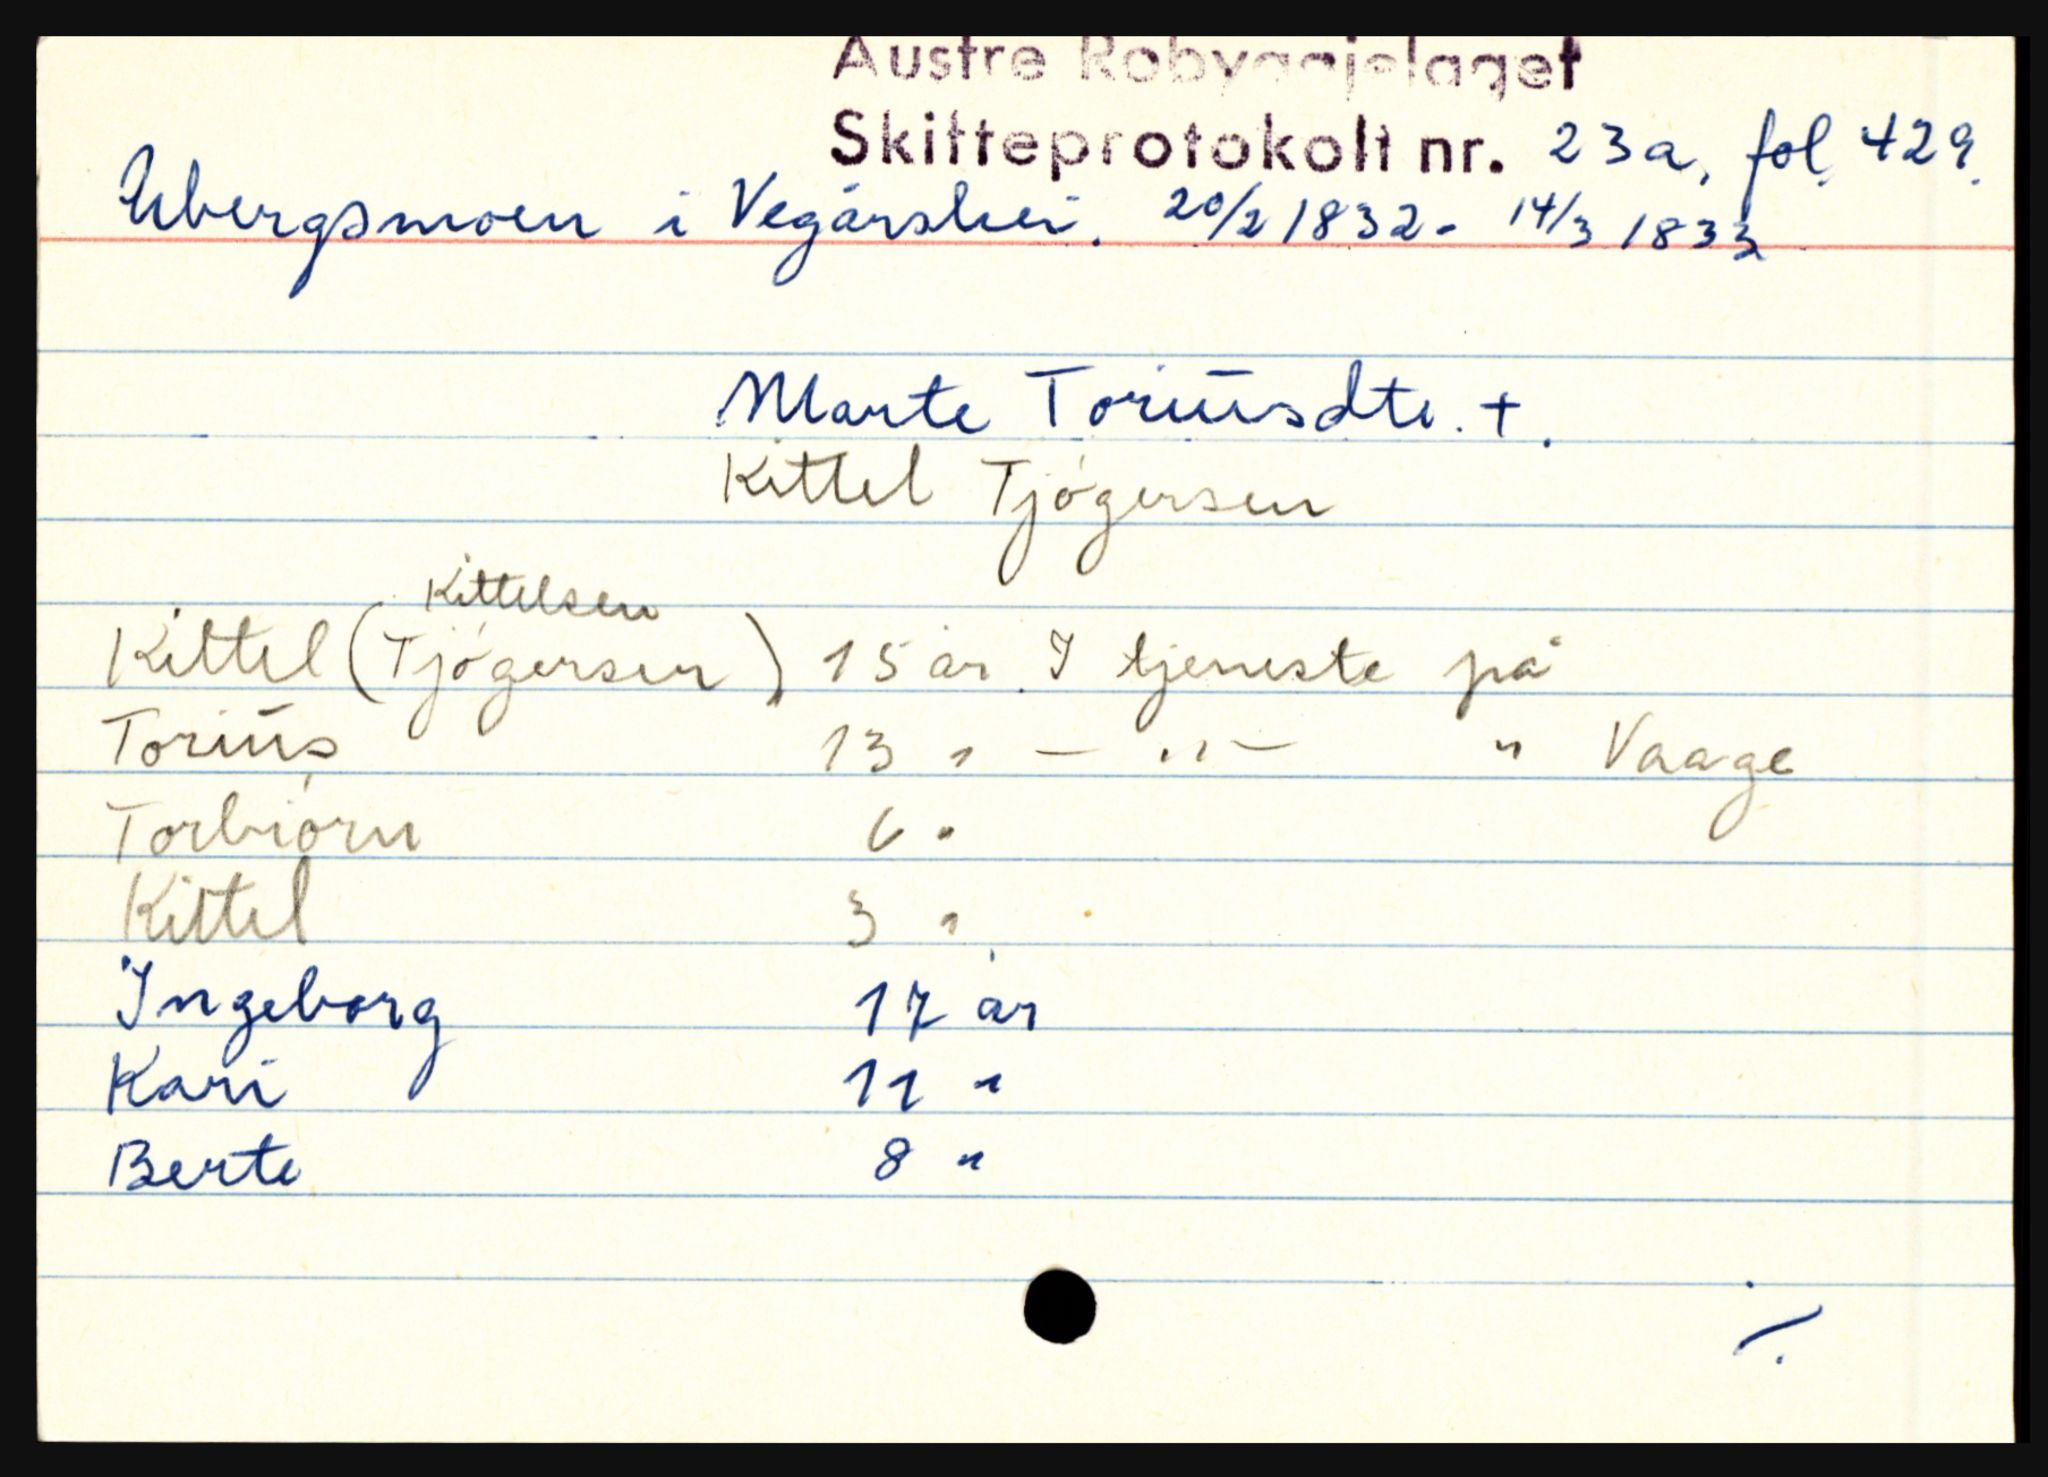 Austre Robyggjelaget
Skifteprotokoll nr. 23a, fol. 429.
Ubergsmoen i Vegårshei. 20/2 1832 - 14/3 1833
Marte Toriusdtr. +.
Kittel Tjøgersen
Kittelsen
Kittel (Tjøgersen) 15 år. I tjeneste på
Torius 13 " — " — " Vaage
Torbiørn 6 "
Kittel 3 "
Ingeborg 17 år
Kari 11 "
Berte 8 "
./.